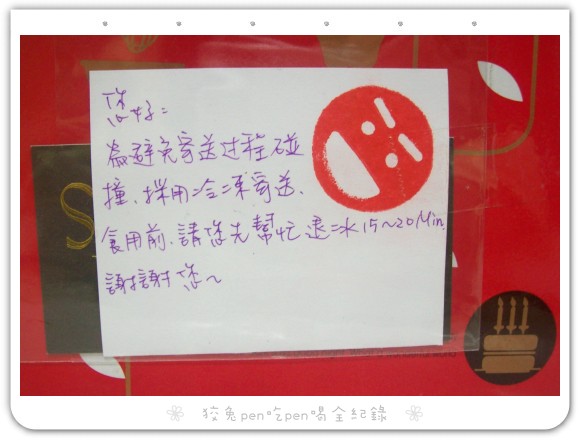 您好：
為避免寄送过程碰
撞、採用冷凍寄送、
食用前、請您先幫忙退冰15~20Min
謝謝您~
狡兔pen吃pen喝全紀錄